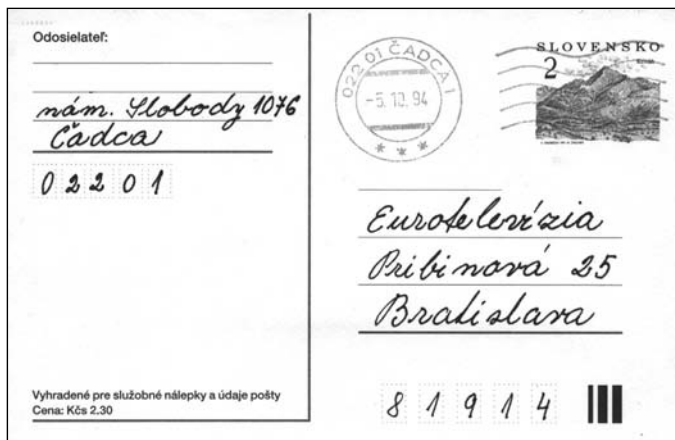 Odosielateľ:
nám. Slobody 1076
Čadca
02201
Vyhradené pre služobné nálepky a údaje pošty
Cena: Kčs 2.30
022 01 ČADCA 1
-5.10.94
SLOVENSKO
2
Eurotelevízia
Pribinová 25
Bratislava
81914